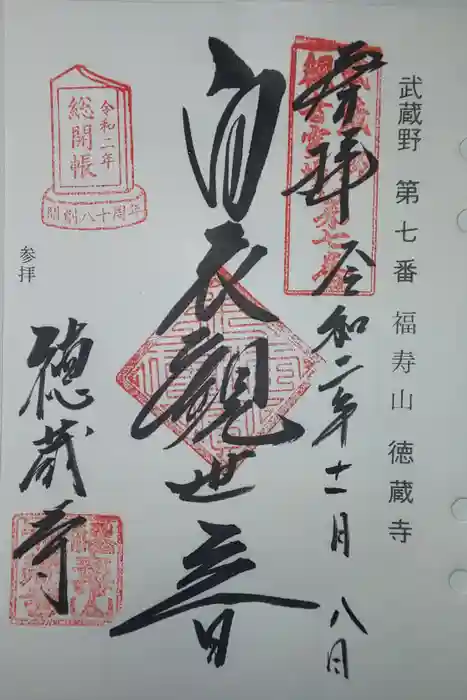 武蔵野 第七番 福寿山 徳蔵寺
奉拝 令和二年十一月 八日
白衣観世音
令和二年
総開帳
開創八十周年
参拝
徳蔵寺